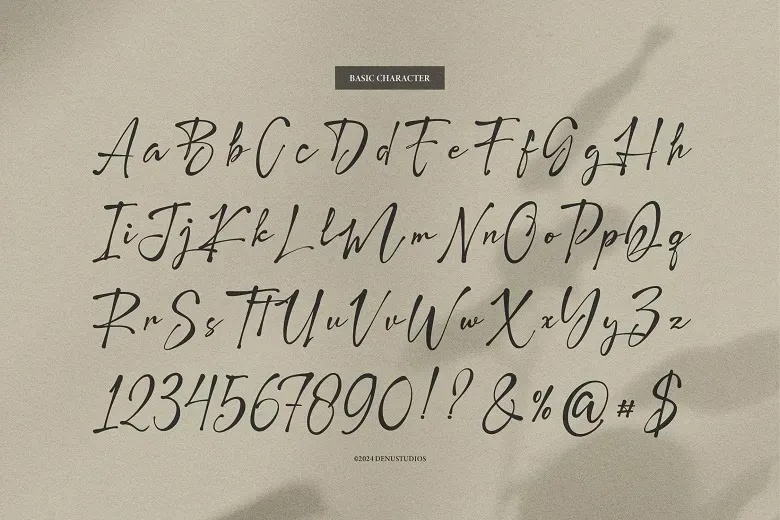 BASIC CHARACTER
Aa Bb Cc Dd Ee Ff Gg Hh
Ii Jj Kk Ll Mm Nn Oo Pp Qq
Rr Ss Tt Uu Vv Ww Xx Yy Zz
1234567890!? &%@#$
©2024 DENUSTUDIOS